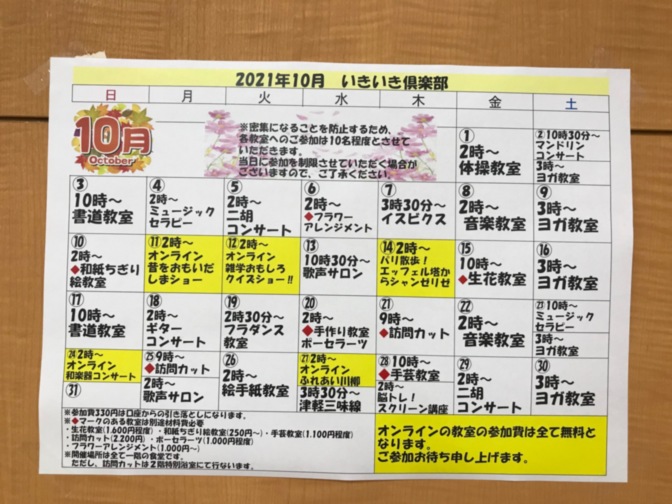 2021年10月　いきいき倶楽部
日　月　火　水　木　金　土
10月
October
※密集になることを防止するため、
各教室へのご参加は10名程度とさせて
いただきます。
当日に参加を制限させていただく場合が
ございますので、ご了承ください。
①
2時～
体操教室
②10時30分～
マンドリン
コンサート
3時～
ヨガ教室
③
10時～
書道教室
④
2時～
ミュージック
セラピー
⑤
2時～
二胡
コンサート
⑥
2時～
◆フラワー
アレンジメント
⑦
3時30分～
イスビクス
⑧
2時～
音楽教室
⑨
3時～
ヨガ教室
⑩
2時～
◆和紙ちぎり
絵教室
⑪2時～
オンライン
昔をおもいだ
しまショー
⑫2時～
オンライン
雑学おもしろ
クイズショー!!
⑬
10時30分～
歌声サロン
⑭2時～
パリ散歩！
エッフェル塔か
らシャンゼリゼ
⑮
10時～
◆生花教室
⑯
3時～
ヨガ教室
⑰
10時～
書道教室
⑱
2時～
ギター
コンサート
⑲
2時30分～
フラダンス
教室
⑳
2時～
◆手作り教室
ポーセラーツ
㉑
9時～
◆訪問カット
㉒
2時～
音楽教室
㉓10時～
ミュージック
セラピー
3時～
ヨガ教室
㉔2時～
オンライン
和楽器コンサート
㉛
㉕9時～
◆訪問カット
2時～
歌声サロン
㉖
2時～
絵手紙教室
㉗2時～
オンライン
ふれあい川柳
3時30分～
津軽三味線
㉘10時～
◆手芸教室
2時～
脳トレ！
スクリーン講座
㉙
2時～
二胡
コンサート
㉚
3時～
ヨガ教室
※参加費330円は口座からの引き落としになります。
※◆マークのある教室は別途材料費必要
・生花教室(1,600円程度)・和紙ちぎり絵教室(250円～)・手芸教室(1,100円程度)
・訪問カット(2,200円)・ポーセラーツ(1,000円程度)
・フラワーアレンジメント(1,000円～)
※開催場所は全て一階の食堂です。
ただし、訪問カットは２階特別浴室にて行ないます。
オンラインの教室の参加費は全て無料と
なります。
ご参加お待ち申し上げます。